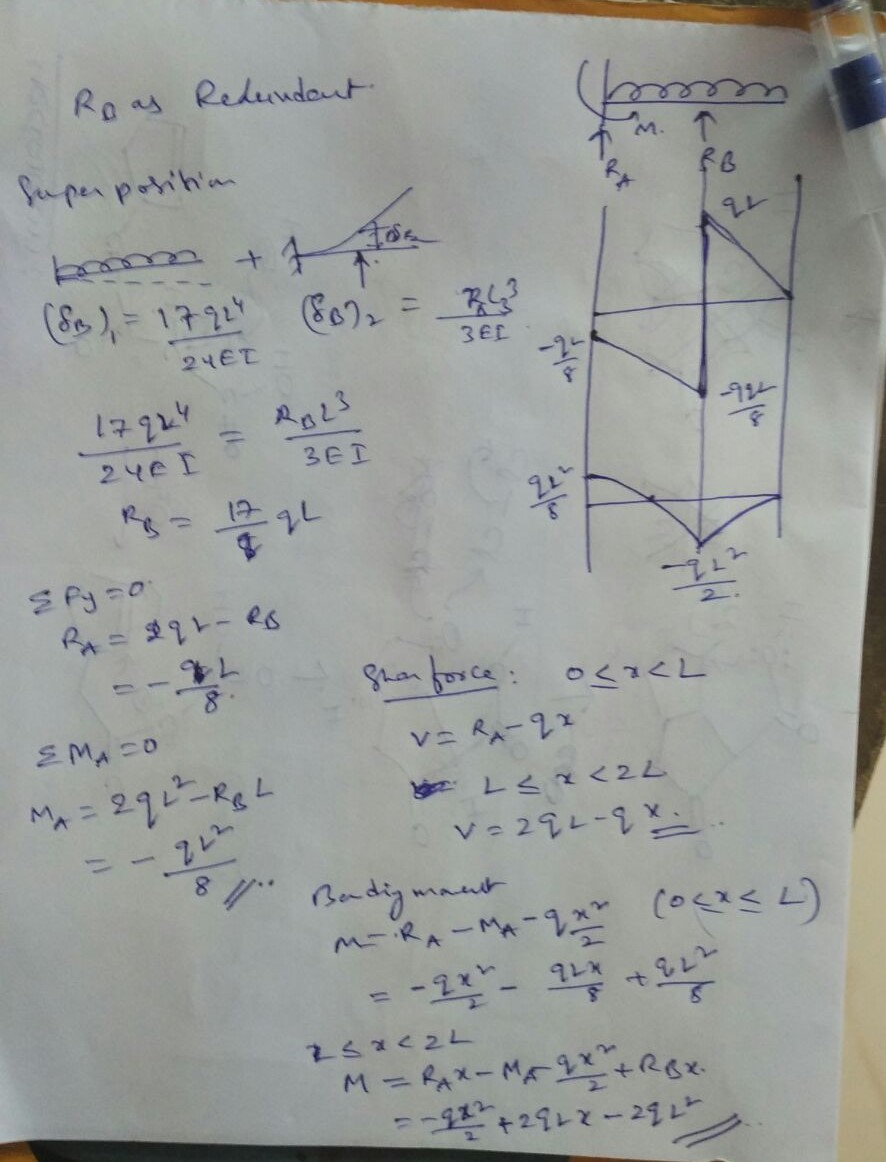 R_B as Redundant.
Superposition
+
δ_B
(δ_B)₁ = 17qL⁴/24EI (δ_B)₂ = R_B L³/3EI
17qL⁴/24EI = R_B L³/3EI
R_B = 17/8 qL
ΣFy = 0
R_A = 2qL - R_B
= - qL/8.
ΣM_A = 0
M_A = 2qL² - R_B L
= - qL²/8 //..
M.
R_A
R_B
qL
-qL/8
-9qL/8
qL²/8
-qL²/2.
Shear force : 0 ≤ x < L
V = R_A - qx
L ≤ x < 2L
V = 2qL - qx.
Bending moment
M = R_A - M_A - qx²/2 (0 ≤ x ≤ L)
= -qx²/2 - qLx/8 + qL²/8
L ≤ x < 2L
M = R_A x - M_A - qx²/2 + R_B x.
= -qx²/2 + 2qLx - 2qL² //..